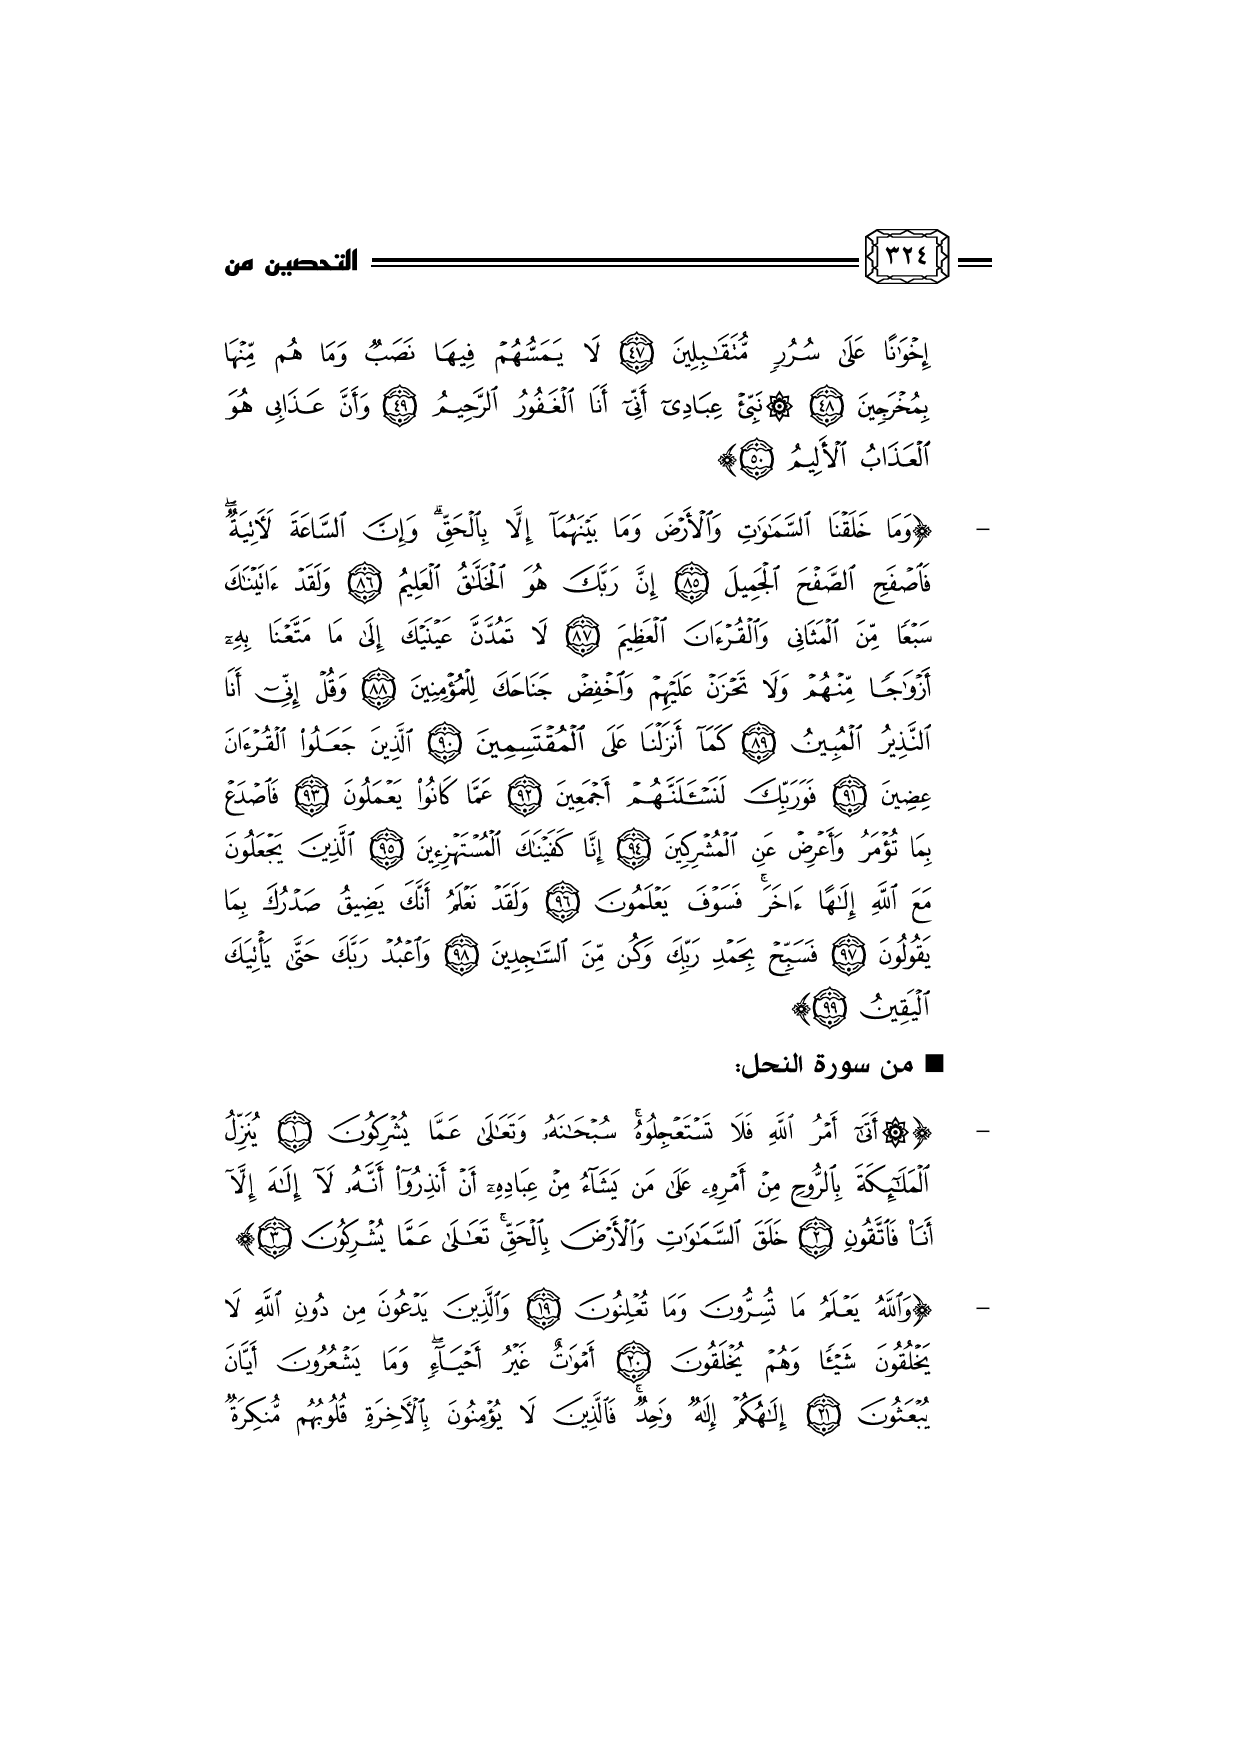 ٣٢٤ التحصين من
إِخْوَٰنًا عَلَىٰ سُرُرٍ مُّتَقَٰبِلِينَ ٤٧ لَا يَمَسُّهُمْ فِيهَا نَصَبٌ وَمَا هُم مِّنْهَا
بِمُخْرَجِينَ ٤٨ ۞ نَبِّئْ عِبَادِىٓ أَنِّىٓ أَنَا ٱلْغَفُورُ ٱلرَّحِيمُ ٤٩ وَأَنَّ عَذَابِى هُوَ
ٱلْعَذَابُ ٱلْأَلِيمُ ٥٠﴾
– ﴿وَمَا خَلَقْنَا ٱلسَّمَٰوَٰتِ وَٱلْأَرْضَ وَمَا بَيْنَهُمَآ إِلَّا بِٱلْحَقِّ ۗ وَإِنَّ ٱلسَّاعَةَ لَـَٔاتِيَةٌ ۖ
فَٱصْفَحِ ٱلصَّفْحَ ٱلْجَمِيلَ ٨٥ إِنَّ رَبَّكَ هُوَ ٱلْخَلَّٰقُ ٱلْعَلِيمُ ٨٦ وَلَقَدْ ءَاتَيْنَٰكَ
سَبْعًا مِّنَ ٱلْمَثَانِى وَٱلْقُرْءَانَ ٱلْعَظِيمَ ٨٧ لَا تَمُدَّنَّ عَيْنَيْكَ إِلَىٰ مَا مَتَّعْنَا بِهِۦٓ
أَزْوَٰجًا مِّنْهُمْ وَلَا تَحْزَنْ عَلَيْهِمْ وَٱخْفِضْ جَنَاحَكَ لِلْمُؤْمِنِينَ ٨٨ وَقُلْ إِنِّىٓ أَنَا
ٱلنَّذِيرُ ٱلْمُبِينُ ٨٩ كَمَآ أَنزَلْنَا عَلَى ٱلْمُقْتَسِمِينَ ٩٠ ٱلَّذِينَ جَعَلُوا۟ ٱلْقُرْءَانَ
عِضِينَ ٩١ فَوَرَبِّكَ لَنَسْـَٔلَنَّهُمْ أَجْمَعِينَ ٩٢ عَمَّا كَانُوا۟ يَعْمَلُونَ ٩٣ فَٱصْدَعْ
بِمَا تُؤْمَرُ وَأَعْرِضْ عَنِ ٱلْمُشْرِكِينَ ٩٤ إِنَّا كَفَيْنَٰكَ ٱلْمُسْتَهْزِءِينَ ٩٥ ٱلَّذِينَ يَجْعَلُونَ
مَعَ ٱللَّهِ إِلَٰهًا ءَاخَرَ ۚ فَسَوْفَ يَعْلَمُونَ ٩٦ وَلَقَدْ نَعْلَمُ أَنَّكَ يَضِيقُ صَدْرُكَ بِمَا
يَقُولُونَ ٩٧ فَسَبِّحْ بِحَمْدِ رَبِّكَ وَكُن مِّنَ ٱلسَّٰجِدِينَ ٩٨ وَٱعْبُدْ رَبَّكَ حَتَّىٰ يَأْتِيَكَ
ٱلْيَقِينُ ٩٩﴾
■ من سورة النحل:
– ﴿۞ أَتَىٰٓ أَمْرُ ٱللَّهِ فَلَا تَسْتَعْجِلُوهُ ۚ سُبْحَٰنَهُۥ وَتَعَٰلَىٰ عَمَّا يُشْرِكُونَ ١ يُنَزِّلُ
ٱلْمَلَٰٓئِكَةَ بِٱلرُّوحِ مِنْ أَمْرِهِۦ عَلَىٰ مَن يَشَآءُ مِنْ عِبَادِهِۦٓ أَنْ أَنذِرُوٓا۟ أَنَّهُۥ لَآ إِلَٰهَ إِلَّآ
أَنَا۠ فَٱتَّقُونِ ٢ خَلَقَ ٱلسَّمَٰوَٰتِ وَٱلْأَرْضَ بِٱلْحَقِّ ۚ تَعَٰلَىٰ عَمَّا يُشْرِكُونَ ٣﴾
– ﴿وَٱللَّهُ يَعْلَمُ مَا تُسِرُّونَ وَمَا تُعْلِنُونَ ١٩ وَٱلَّذِينَ يَدْعُونَ مِن دُونِ ٱللَّهِ لَا
يَخْلُقُونَ شَيْـًٔا وَهُمْ يُخْلَقُونَ ٢٠ أَمْوَٰتٌ غَيْرُ أَحْيَآءٍ ۖ وَمَا يَشْعُرُونَ أَيَّانَ
يُبْعَثُونَ ٢١ إِلَٰهُكُمْ إِلَٰهٌ وَٰحِدٌ ۚ فَٱلَّذِينَ لَا يُؤْمِنُونَ بِٱلْـَٔاخِرَةِ قُلُوبُهُم مُّنكِرَةٌ